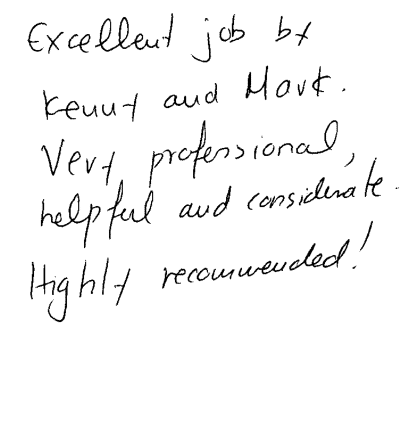 Excellent job by
Kenny and Mark.
Very professional,
helpful and considerate.
Highly recommended!